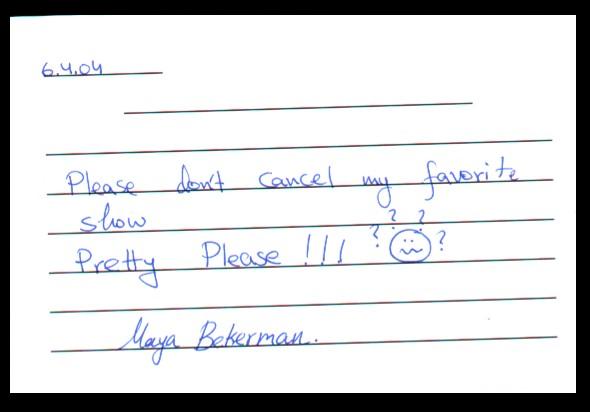 6.4.04
Please don't cancel my favorite
show
? ?
Pretty Please !!! ? ?
Maya Bekerman.